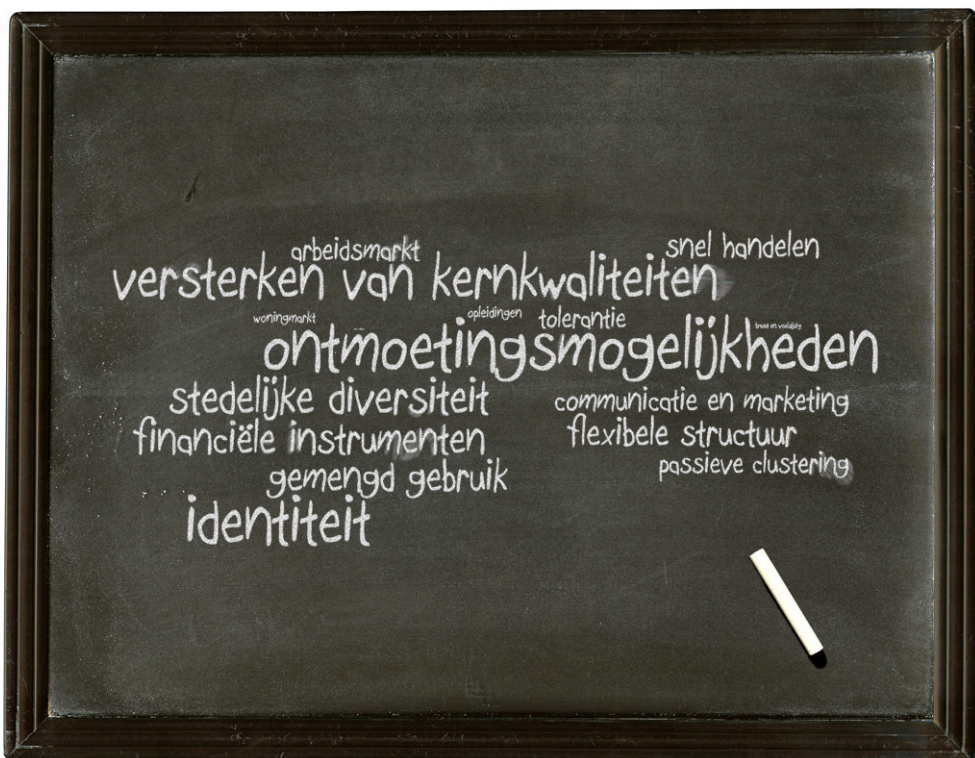 arbeidsmarkt snel handelen
versterken van kernkwaliteiten
woningmarkt opleidingen tolerantie
ontmoetingsmogelijkheden
stedelijke diversiteit communicatie en marketing
financiële instrumenten flexibele structuur
gemengd gebruik passieve clustering
identiteit